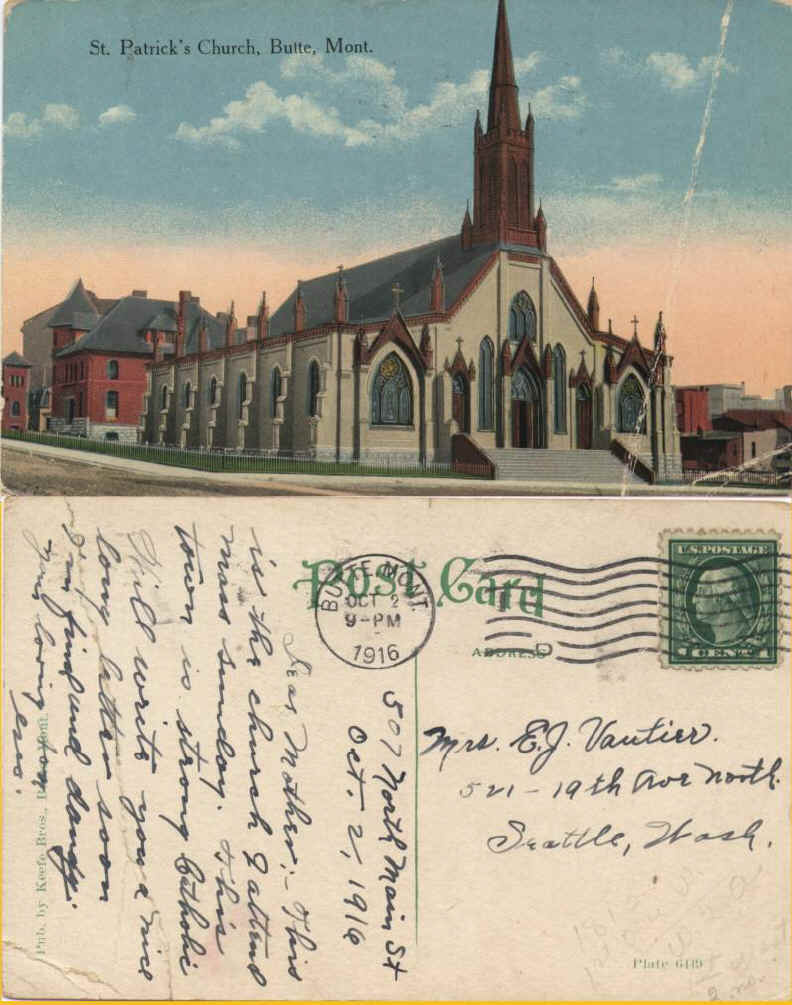 St. Patrick's Church, Butte, Mont.
Post Card
BUTTE, MONT.
OCT 2
9-PM
1916
U.S. POSTAGE
1 CENT 1
ADDRESS
507 North Main St
Oct. 2, 1916
Dear Mother:- This
is the church I attend
mass sunday. This
town is strong Catholic
Will write you a nice
long letter soon
I'm fine and dandy.
your loving son
Mrs. E.J. Vautier.
521-19th Ave North.
Seattle, Wash.
Pub. by Keefe Bros., Butte, Mont.
Plate 6489